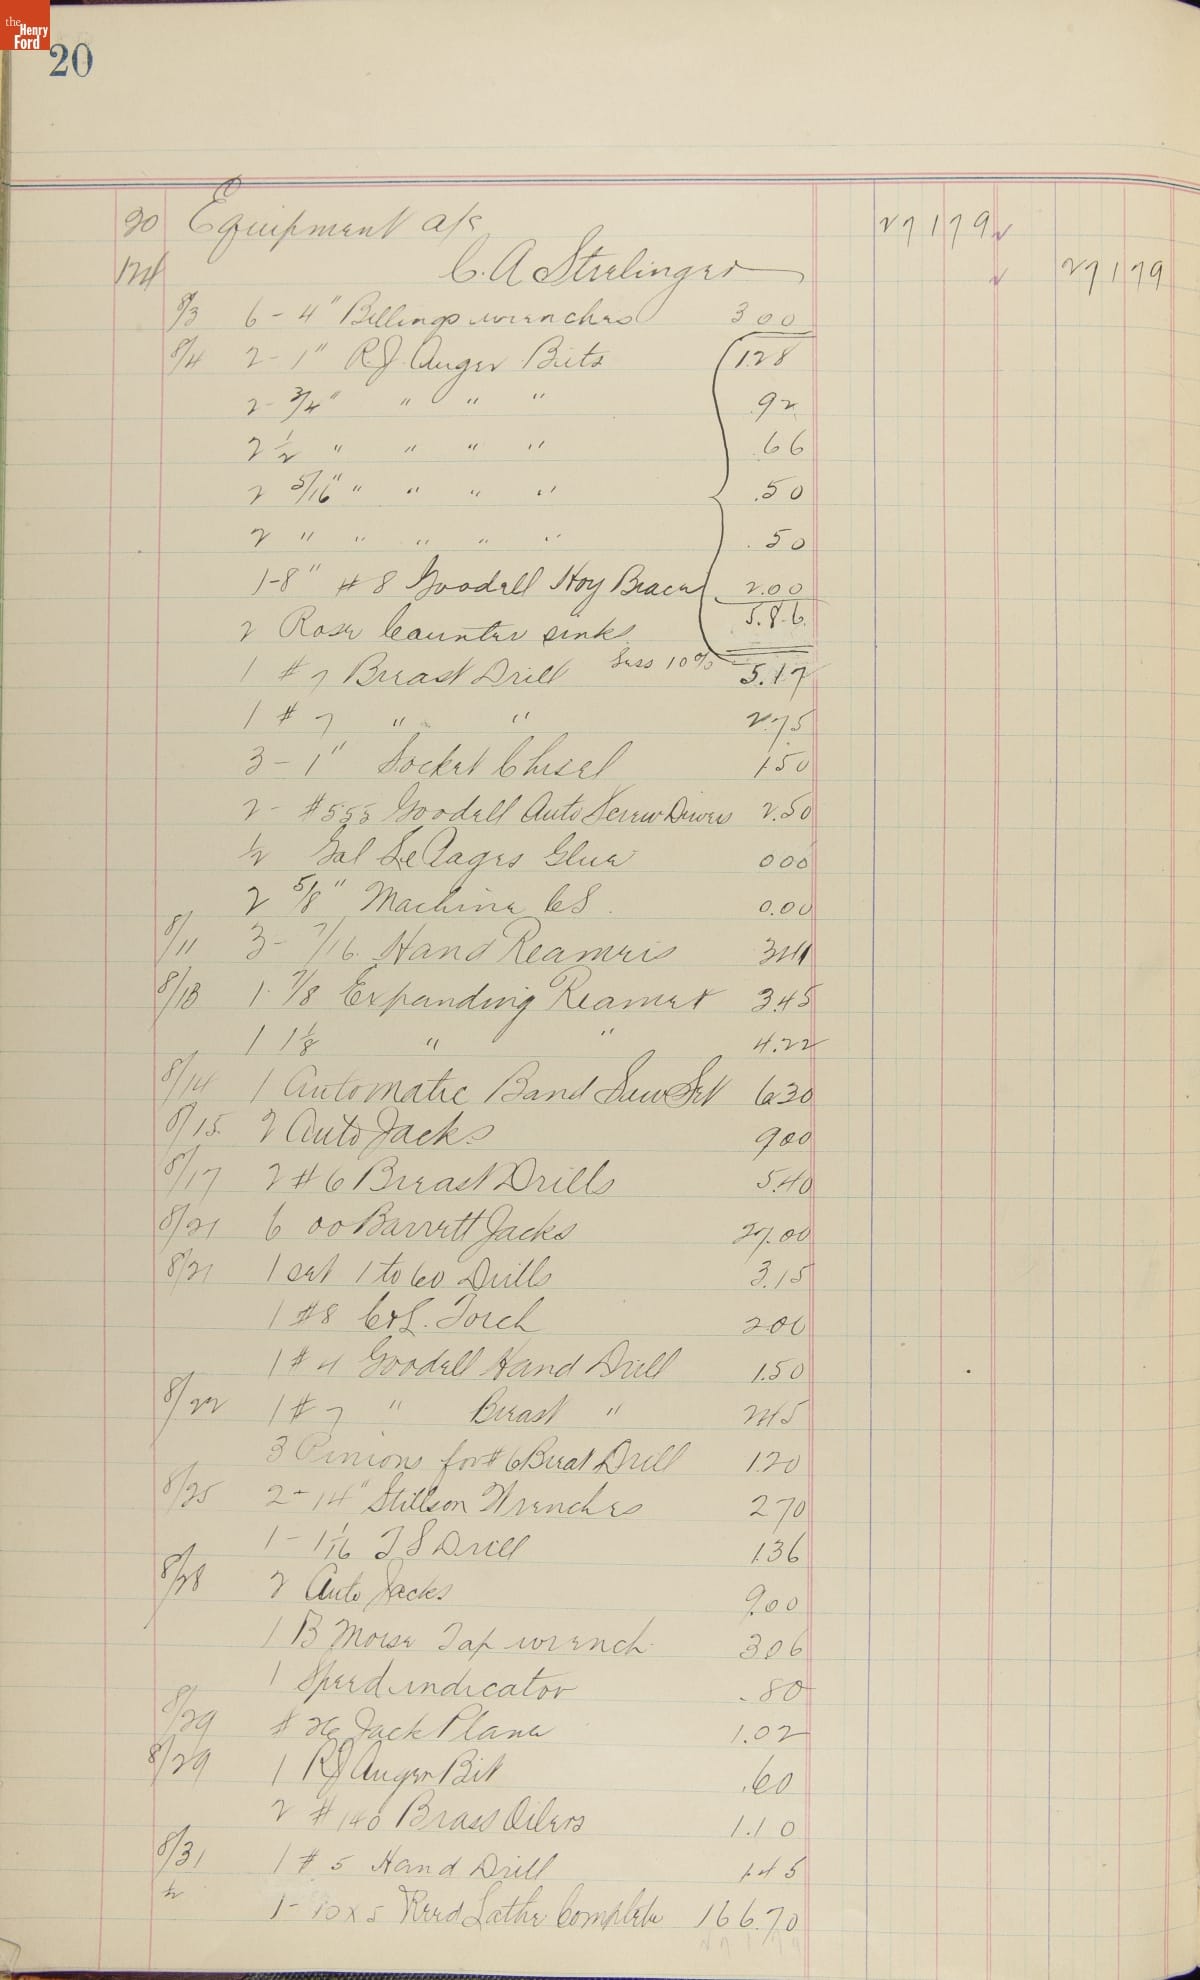 the Henry Ford
20
20 Equipment a/c 271 79
124 C. A. Strelinger 271 79
8/3 6 - 4" Billings wrenches 3 00
8/4 2 - 1" R.J. Auger Bits 1.28
2 - 3/4" " " " .92
2 1/2 " " " " .66
2 5/16" " " " " .50
2 " " " " " .50
1-8" #8 Goodell Hoy Braces 2.00
5.86
2 Rose Counter sinks
Less 10%
1 #7 Breast Drill 5.17
1 #7 " " 2.75
3 - 1" Socket Chisel 1.50
2 - #555 Goodell Auto Screw Drivers 2.50
1/2 Gal Le Pages Glue 0 00
2 5/8" Machine CS 0.00
8/11 3 - 7/16 Hand Reamers
8/13 1 7/8 Expanding Reamer 3.45
1 1 1/8 " " 4.22
8/14 1 Automatic Band Saw Set 6.30
8/15 2 Auto Jacks 9 00
8/17 2 #6 Breast Drills 5.40
8/21 6 00 Barrett Jacks 27.00
8/21 1 set 1 to 60 Drills 3.15
1 #8 C&L. Torch 2.00
1 #4 Goodell Hand Drill 1.50
8/22 1 #7 " Breast "
3 Pinions for #6 Breat Drill 1.20
8/25 2 - 14" Stillson Wrenches 2 70
1 - 1 1/16 T S Drill 1.36
8/28 2 Auto Jacks 9.00
1 B Morse Tap wrench 3 06
1 Speed indicator .80
8/29 #26 Jack Plane 1.02
8/29 1 RJ Auger Bit .60
2 #140 Brass Oilers 1.10
8/31 1 #5 Hand Drill 1.45
1/2
1 - 10 x 5 Reed Lathe Complete 166.70